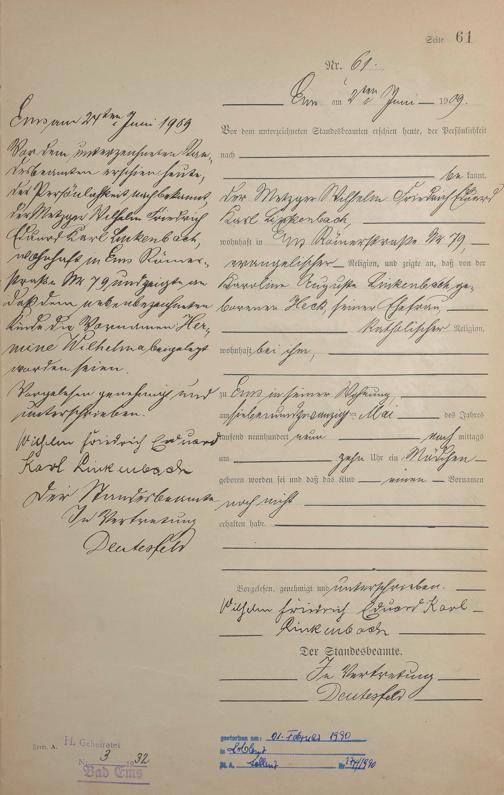 Seite 61
Nr. 61.
Ems am 2ten Juni 1909.
Vor dem unterzeichneten Standesbeamten erschien heute, der Persönlichkeit
nach
be kannt,
der Metzger Wilhelm Friedrich Eduard
Karl Linkenbach,
wohnhaft in Ems Römerstraße Nr 79,
evangelischer Religion, und zeigte an, daß von der
Karoline Auguste Linkenbach ge-
borenen Heck, seiner Ehefrau,
katholischer Religion,
wohnhaft bei ihm,
zu Ems in seiner Wohnung,
am siebenundzwanzig ten Mai des Jahres
tausend neunhundert neun nach mittags
um zehn Uhr ein Mädchen
geboren worden sei und daß das Kind einen Vornamen
noch nicht
erhalten habe.
Vorgelesen, genehmigt und unterschrieben.
Wilhelm Friedrich Eduard Karl
Linkenbach
Der Standesbeamte.
In Vertretung
Deutesfeld
Ems am 24ten Juni 1909
Vor dem unterzeichneten Stan-
desbeamten erschien heute,
der Persönlichkeit nach bekannt,
der Metzger Wilhelm Friedrich
Eduard Karl Linkenbach,
wohnhaft in Ems Römer-
straße Nr 79 und zeigte an
daß dem nebenbezeichneten
Kinde die Vornamen Her-
mine Wilhelma beigelegt
worden seien.
Vorgelesen genehmigt und
unterschrieben.
Wilhelm Friedrich Eduard
Karl Linkenbach
Der Standesbeamte
In Vertretung
Deutesfeld
Form. A.
H. Geheiratet
Nr. 3 1932
Bad Ems
gestorben am: 01. Februar 1990
in Koblenz
St. A. Koblenz Nr. /1990